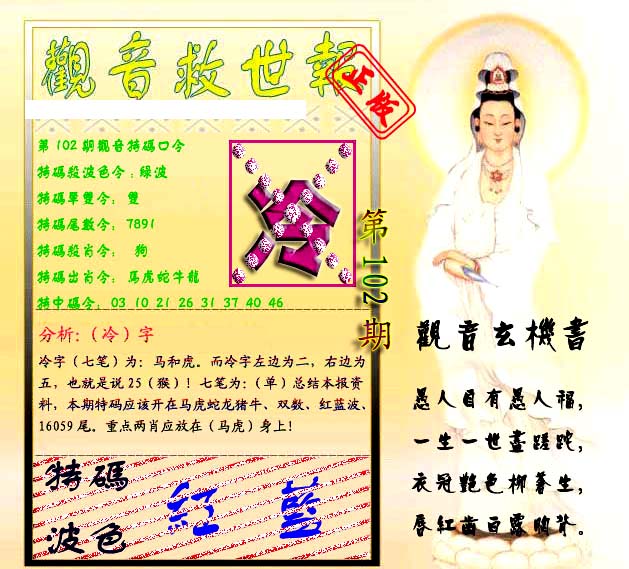 觀音救世報
正版
第102期觀音特碼口令
特碼殺波色令:綠波
特碼單雙令: 雙
特碼尾數令: 7891
特碼殺肖令: 狗
特碼出肖令: 馬虎蛇牛龍
特中碼令: 03 10 21 26 31 37 40 46
冷
第102期
分析:(冷)字
冷字(七笔)为:马和虎。而冷字左边为二,右边为
五,也就是说25(猴)!七笔为:(单)总结本报资
料,本期特码应该开在马虎蛇龙猪牛、双数、红蓝波、
16059尾。重点两肖应放在(马虎)身上!
特碼
波色
紅 藍
觀音玄機書
愚人自有愚人福,
一生一世盡蹉跎,
衣冠艷色柳養生,
唇紅齒白露